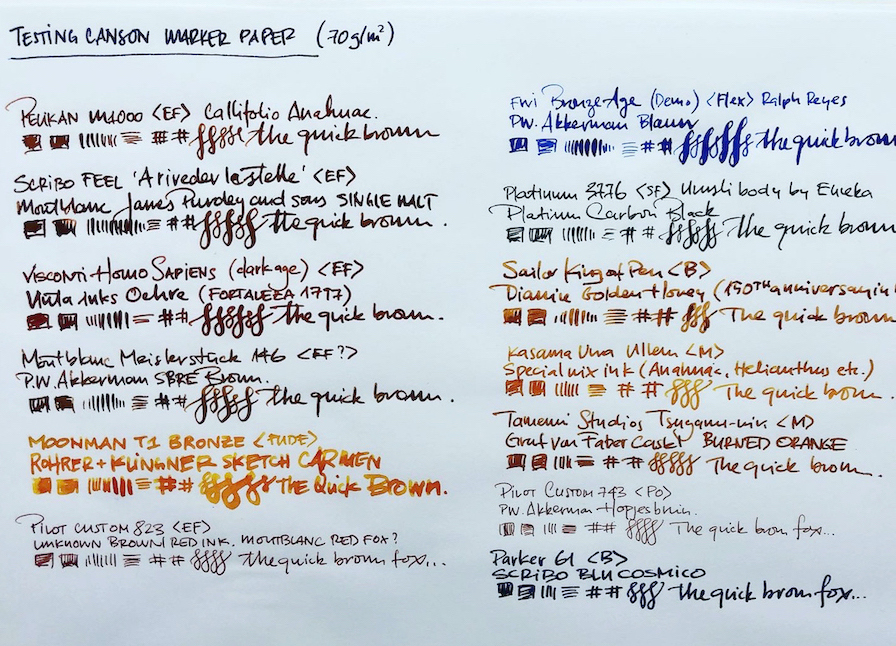 TESTING CANSON MARKER PAPER (70g/m²)
PELIKAN M1000 <EF> Callifolio Anahuac.
the quick brown
SCRIBO FEEL 'A riveder le stelle' <EF>
Montblanc James Purdey and sons SINGLE MALT
the quick brown.
VISCONTI HOMO SAPIENS (dark age) <EF>
Vinta inks Ochre (FORTALEZA 1797)
the quick brown.
Montblanc Meisterstück 146 <EF?>
P.W. Akkerman SBRE Brown.
the quick brown.
MOONMAN T1 BRONZE <FUDE>
ROHRER + KLINGNER SKETCH CARMEN
THE QUICK BROWN.
PILOT CUSTOM 823 <EF>
UNKNOWN BROWN/RED INK. MONTBLANC RED FOX?
the quick brown fox...
FWI Bronze Age (Demo) <Flex> Ralph Reyes
P.W. Akkerman Blauw
the quick brown
Platinum 3776 <SF> Urushi body by Eureka
Platinum Carbon Black
the quick brown
Sailor King of Pen <B>
Diamine Golden Honey (150TH anniversary in
The quick brown
Kasama Una Ultem <M>
Special mix ink (Anahuac, Helianthus etc.)
The quick brown.
Tamenui Studios Tsugaru-nuri <M>
Graf von Faber Castell BURNED ORANGE
The quick brown.
PILOT CUSTOM 743 <PO>
P.W. Akkerman Hopjesbruin.
The quick brown fox...
Parker 61 <B>
SCRIBO BLU COSMICO
the quick brown fox...